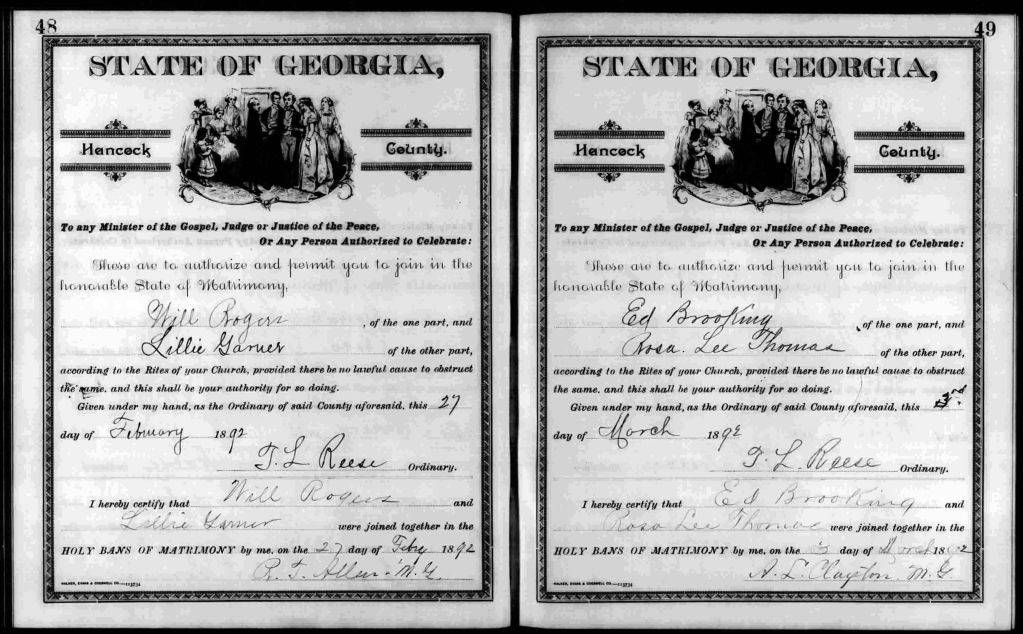 48
STATE OF GEORGIA,
Hancock County.
To any Minister of the Gospel, Judge or Justice of the Peace,
Or Any Person Authorized to Celebrate:
These are to authorize and permit you to join in the
honorable State of Matrimony,
Will Rogers , of the one part, and
Lillie Garner of the other part,
according to the Rites of your Church, provided there be no lawful cause to obstruct
the same. and this shall be your authority for so doing.
Given under my hand, as the Ordinary of said County aforesaid, this 27
day of February 1892
T. L. Reese Ordinary.
I hereby certify that Will Rogers and
Lillie Garner were joined together in the
HOLY BANS OF MATRIMONY by me, on the 27 day of Feby 1892
R. T. Allen M. G.
WALKER, EVANS & COGSWELL CO.—113734
49
STATE OF GEORGIA,
Hancock County.
To any Minister of the Gospel, Judge or Justice of the Peace,
Or Any Person Authorized to Celebrate:
These are to authorize and permit you to join in the
honorable State of Matrimony,
Ed Brooking , of the one part, and
Rosa Lee Thomas of the other part,
according to the Rites of your Church, provided there be no lawful cause to obstruct
the same. and this shall be your authority for so doing.
Given under my hand, as the Ordinary of said County aforesaid, this 3rd
day of March 1892
T. L. Reese Ordinary.
I hereby certify that Ed Brooking and
Rosa Lee Thomas were joined together in the
HOLY BANS OF MATRIMONY by me, on the 3 day of March 1892
A. L. Clayton M. G
WALKER, EVANS & COGSWELL CO.—113734